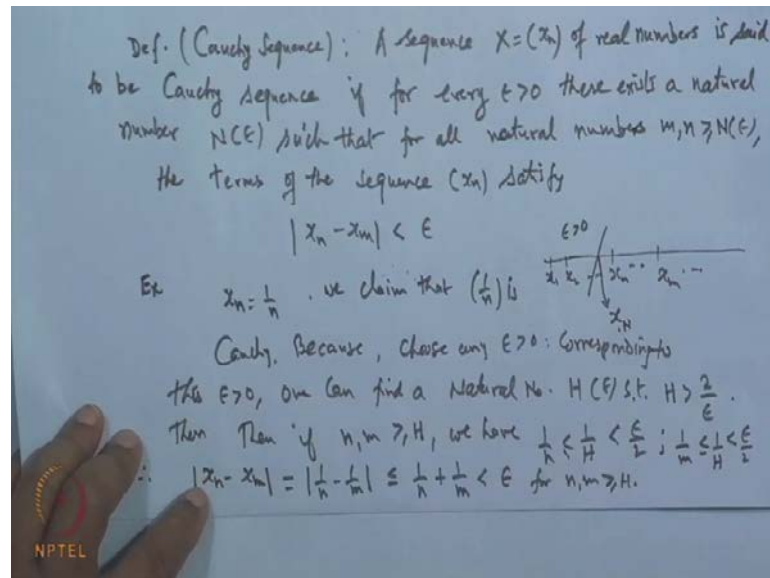 Def. (Cauchy Sequence): A sequence X=(xn) of real numbers is said
to be Cauchy sequence if for every ε>0 there exists a natural
number N(ε) such that for all natural numbers m,n ≥ N(ε),
the terms of the sequence (xn) satisfy
|xn - xm| < ε
ε>0
x1 x2 xn .. xm ...
xN
Ex xn = 1/n . we claim that (1/n) is
Cauchy. Because, choose any ε>0: Corresponding to
this ε>0, one can find a Natural No. H(ε) s.t. H > 2/ε .
Then Then if n,m ≥ H, we have 1/n ≤ 1/H < ε/2 ; 1/m ≤ 1/H < ε/2
∴ |xn - xm| = |1/n - 1/m| ≤ 1/n + 1/m < ε for n,m ≥ H.
NPTEL